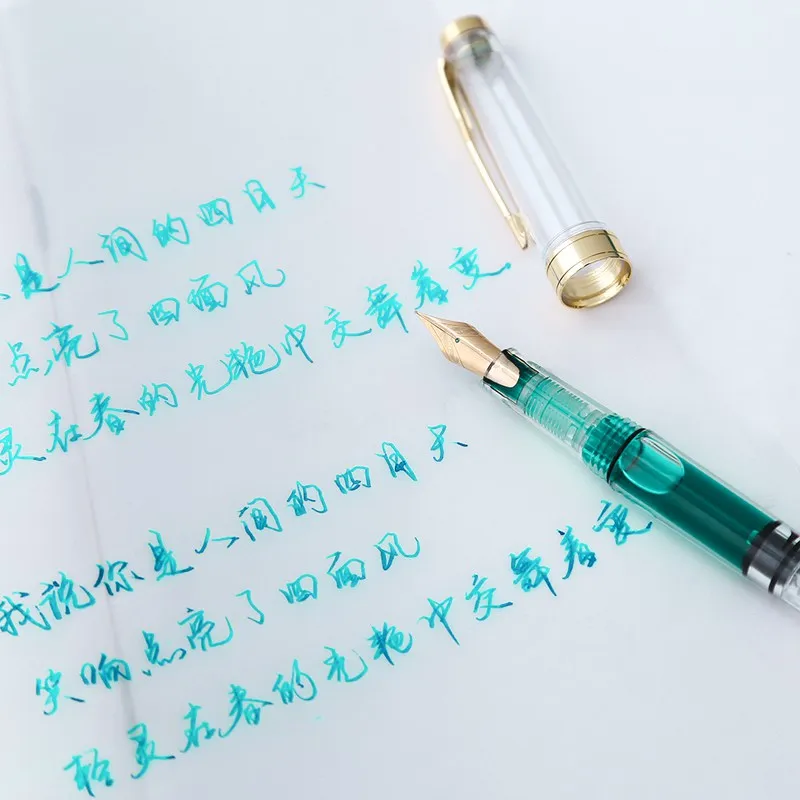 是人间的四月天
点亮了四面风
灵在春的光艳中交舞着变
我说你是人间的四月天
笑响点亮了四面风
轻灵在春的光艳中交舞着变